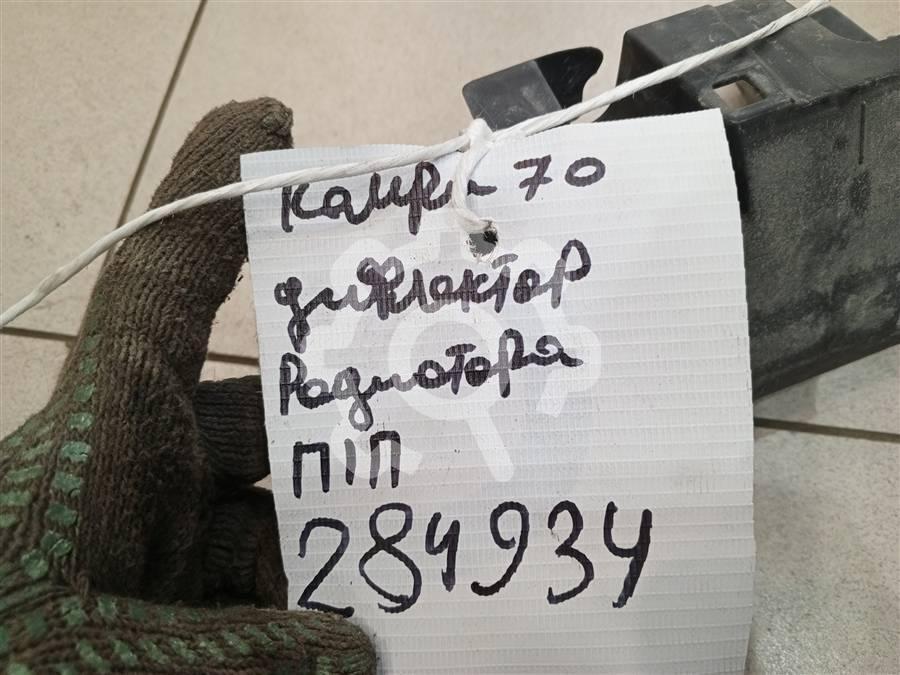 Камри 70
дифлектор
Радиатора
П|П
284934